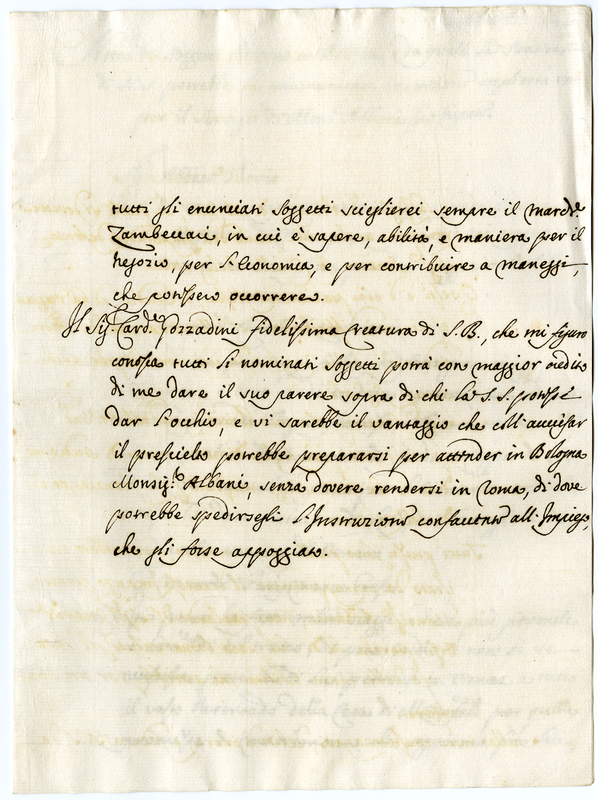 tutti gli enunciati soggetti scieglierei sempre il March.e
Zambeccari, in cui è sapere, abilità, e maniera per il
negozio, per l'economia, e per contribuire a maneggi,
che potessero occorrere.
Il Sig.r Card.e Gozzadini fidelissima creatura di S. B., che mi figuro
conosca tutti li nominati soggetti potrà con maggior credito
di me dare il suo parere sopra di chi la S. S. potesse
dar l'occhio, e vi sarebbe il vantaggio che coll'accusar
il prescielto potrebbe prepararsi per attender in Bologna
Monsig.re Albani, senza dovere rendersi in Roma, di dove
potrebbe spedirsegli l'Instruzione confacente all'Impiego,
che gli fosse appoggiato.